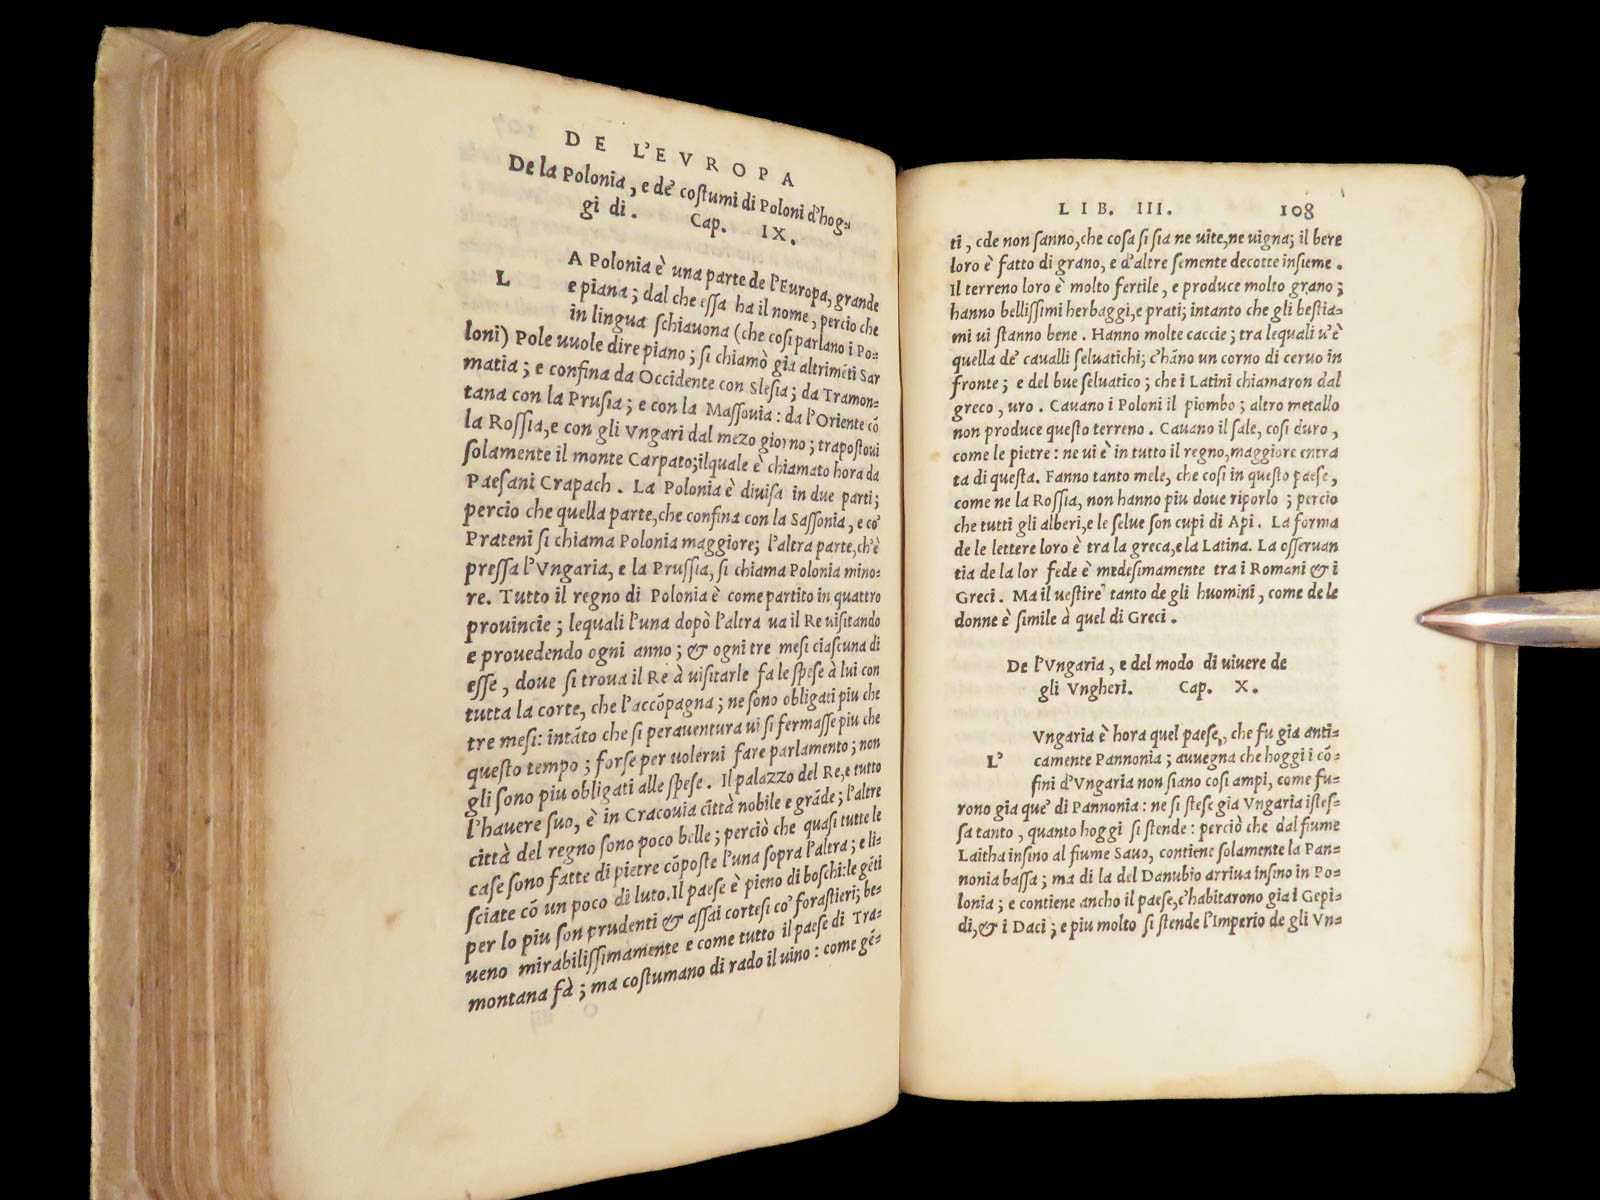 DE L'EVROPA
De la Polonia, e de' costumi di Poloni d'hog-
gi di. Cap. IX.
L A Polonia è una parte de l'Europa, grande
e piana; dal che essa ha il nome, percio che
in lingua schiauona (che cosi parlano i Po-
loni) Pole uuole dire piano; si chiamò gia altrimēti Sar
matia; e confina da Occidente con Slesia; da Tramon-
tana con la Prusia; e con la Massouia: da l'Oriente cō
la Rossia, e con gli Vngari dal mezo giorno; trapostoui
solamente il monte Carpato; ilquale è chiamato hora da
Paesani Crapach. La Polonia è diuisa in due parti;
percio che quella parte, che confina con la Sassonia, e co'
Prateni si chiama Polonia maggiore; l'altra parte, ch'è
pressa l'Vngaria, e la Prussia, si chiama Polonia mino-
re. Tutto il regno di Polonia è come partito in quattro
prouincie; lequali l'una dopò l'altra ua il Re uisitando
e prouedendo ogni anno; & ogni tre mesi ciascuna di
esse, doue si troua il Re à uisitarle fa le spese à lui con
tutta la corte, che l'accōpagna; ne sono obligati piu che
tre mesi: intāto che si perauentura ui si fermasse piu che
questo tempo; forse per uolerui fare parlamento; non
gli sono piu obligati alle spese. Il palazzo del Re, e tutto
l'hauere suo, è in Cracouia città nobile e grāde; l'altre
città del regno sono poco belle; perciò che quasi tutte le
case sono fatte di pietre cōposte l'una sopra l'altra; e li-
sciate cō un poco di luto. Il paese è pieno di boschi: le gēti
per lo piu son prudenti & assai cortesi co' forastieri; be-
ueno mirabilissimamente e come tutto il paese di Tra-
montana fà; ma costumano di rado il uino: come gē-
LIB. III. 108
ti, cde non sanno, che cosa si sia ne uite, ne uigna; il bere
loro è fatto di grano, e d'altre semente decotte insieme.
Il terreno loro è molto fertile, e produce molto grano;
hanno bellissimi herbaggi, e prati; intanto che gli bestia-
mi ui stanno bene. Hanno molte caccie; tra lequali u'è
quella de' caualli seluatichi; c'hāno un corno di ceruo in
fronte; e del bue seluatico; che i Latini chiamaron dal
greco, uro. Cauano i Poloni il piombo; altro metallo
non produce questo terreno. Cauano il sale, cosi duro,
come le pietre: ne ui è in tutto il regno, maggiore entra
ta di questa. Fanno tanto mele, che cosi in questo paese,
come ne la Rossia, non hanno piu doue riporlo; percio
che tutti gli alberi, e le selue son cupi di Api. La forma
de le lettere loro è tra la greca, e la Latina. La osseruan
tia de la lor fede è medesimamente tra i Romani & i
Greci. Ma il uestire tanto de gli huomini, come de le
donne è simile à quel di Greci.
De l'Vngaria, e del modo di uiuere de
gli Vngheri. Cap. X.
L' Vngaria è hora quel paese, che fu gia anti-
camente Pannonia; auuegna che hoggi i cō-
fini d'Vngaria non siano cosi ampi, come fu-
rono gia que' di Pannonia: ne si stese gia Vngaria istes-
sa tanto, quanto hoggi si stende: perciò che dal fiume
Laitha insino al fiume Sauo, contiene solamente la Pan-
nonia bassa; ma di la del Danubio arriua insino in Po-
lonia; e contiene ancho il paese, c'habitarono gia i Gepi-
di, & i Daci; e piu molto si stende l'Imperio de gli Vn-